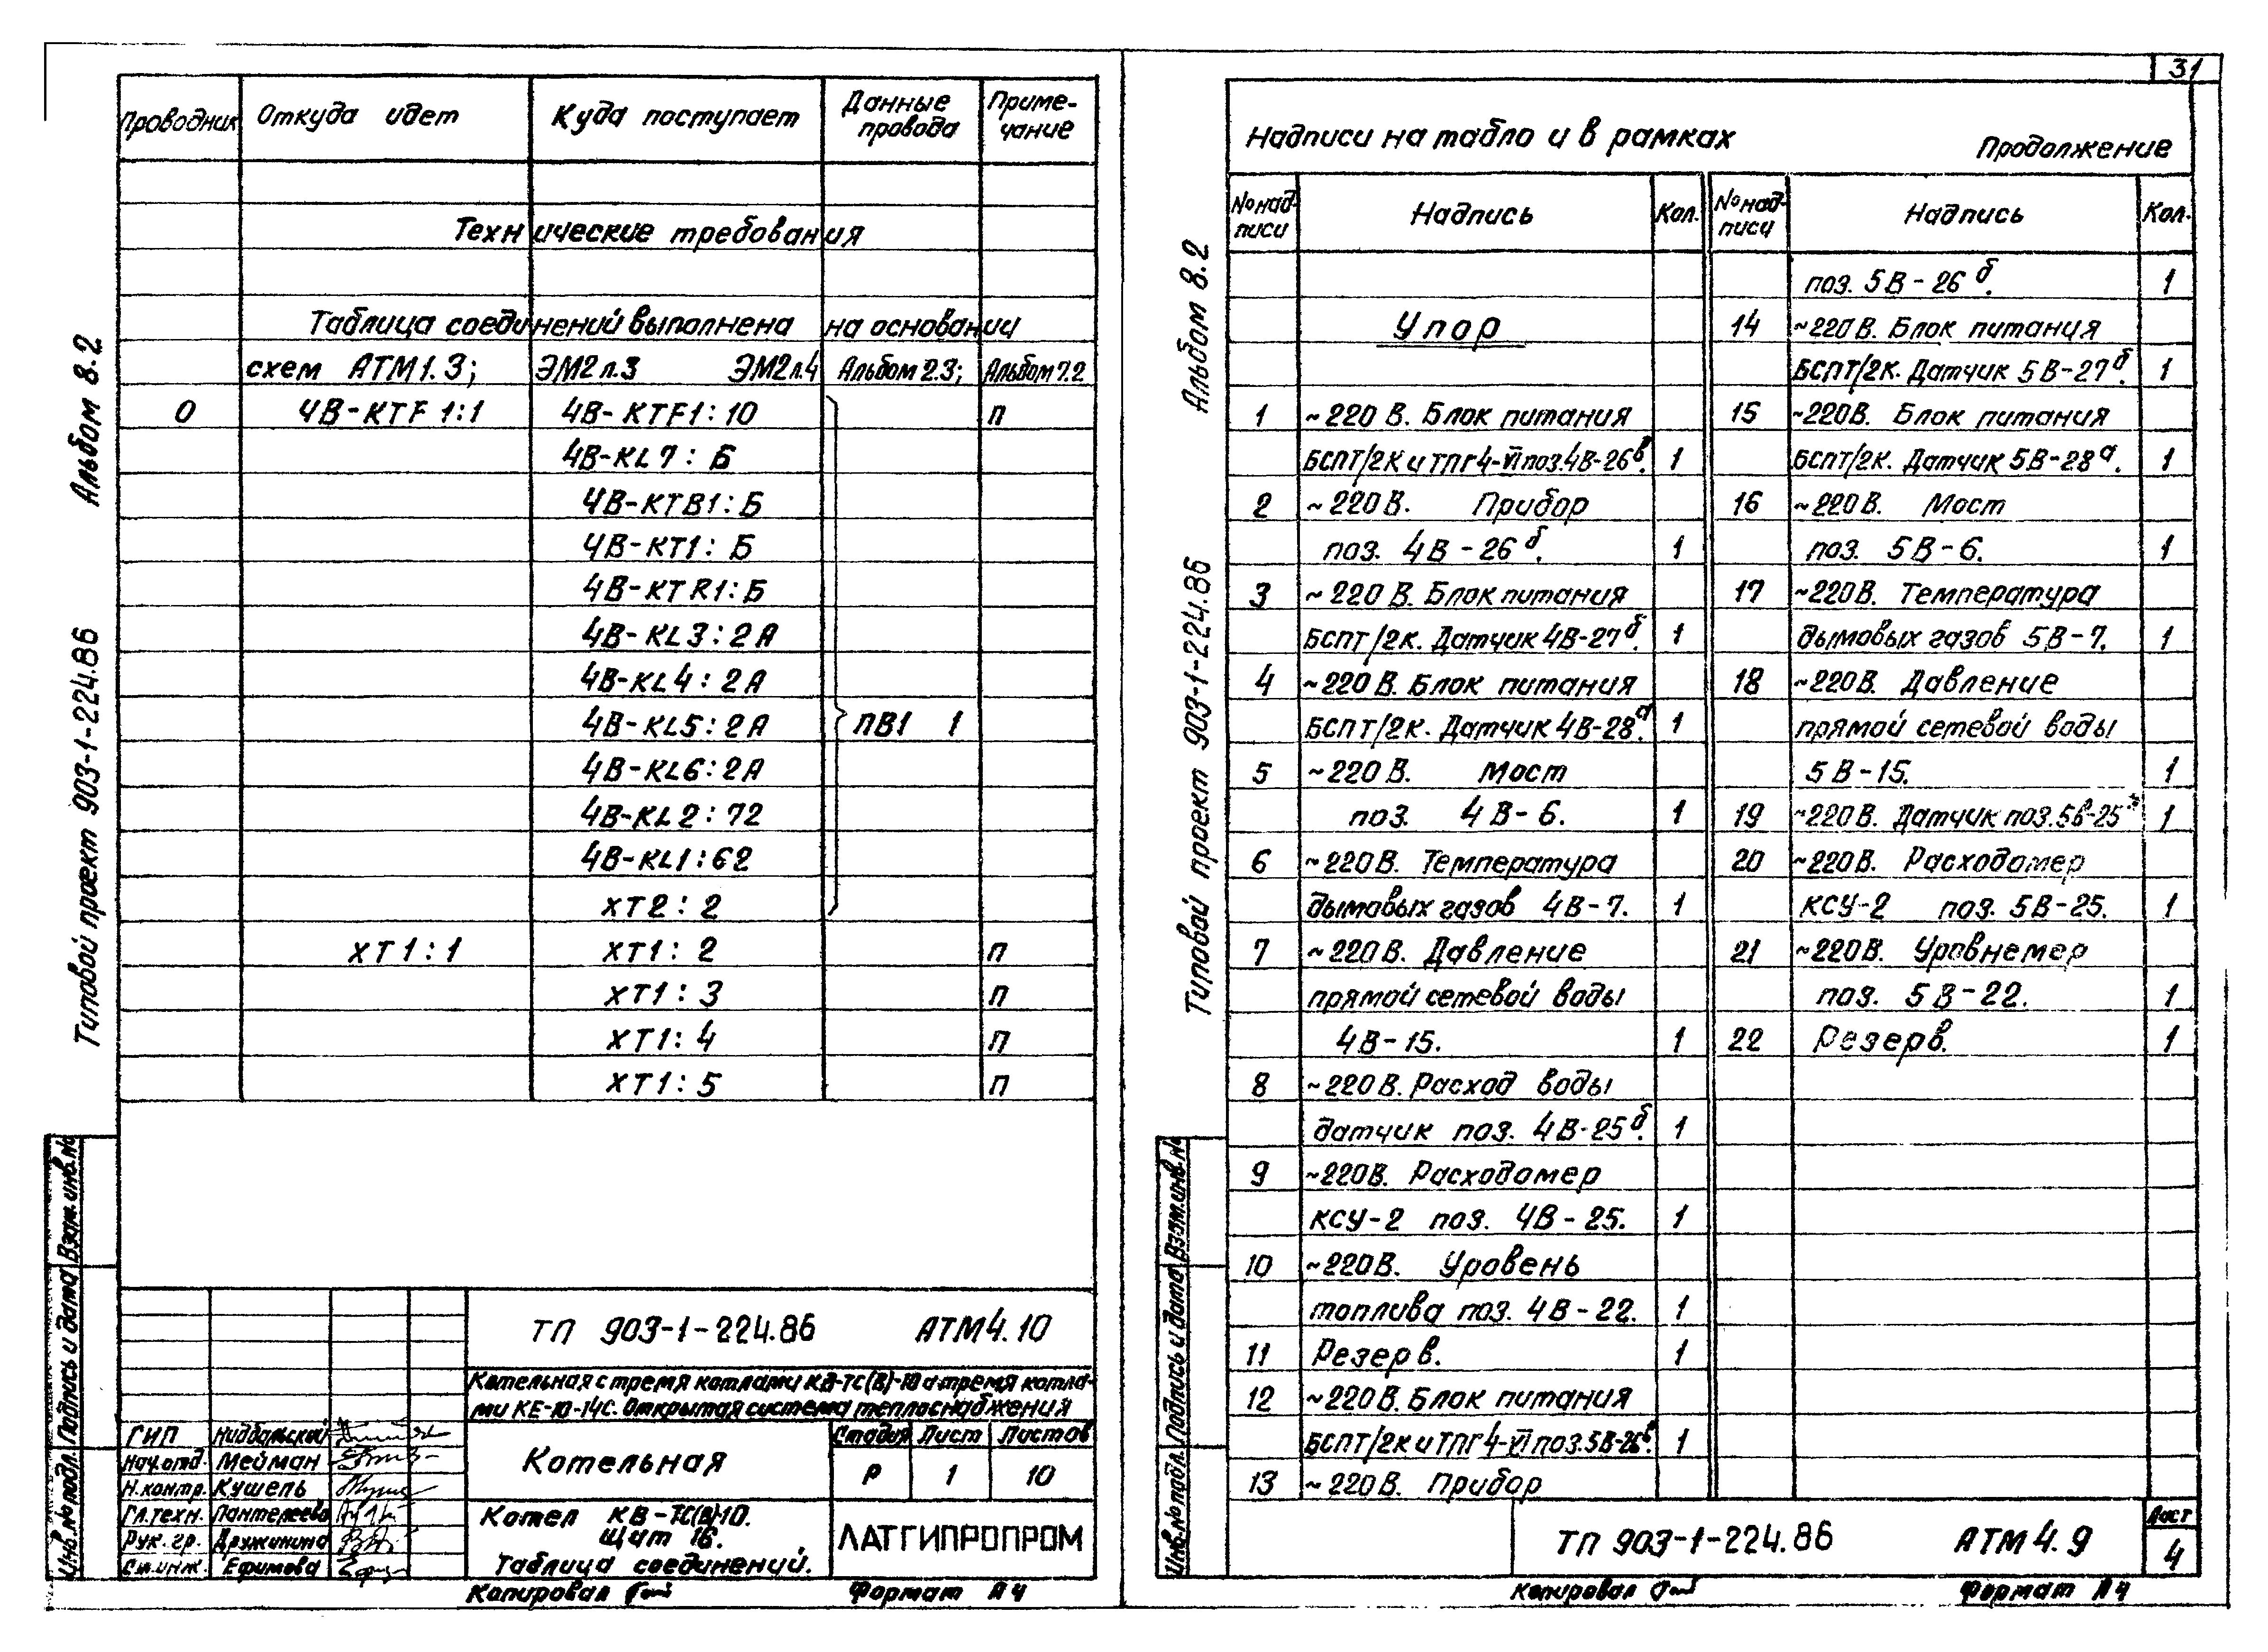 Проводник Откуда идет Куда поступает Данные провода Приме-чание
Технические требования
Таблица соединений выполнена на основании
схем АТМ1.3; ЭМ2л.3 ЭМ2л.4 Альбом 2.3; Альбом 7.2
0 4В-KTF1:1 4В-KTF1:10 п
4В-KL7:Б
4В-KTB1:Б
4В-KT1:Б
4В-KTR1:Б
4В-KL3:2А
4В-KL4:2А
4В-KL5:2А ПВ1 1
4В-KL6:2А
4В-KL2:72
4В-KL1:62
ХТ2:2
ХТ1:1 ХТ1:2 п
ХТ1:3 п
ХТ1:4 п
ХТ1:5 п
Альбом 8.2
Типовой проект 903-1-224.86
Взам. инв. №
Подпись и дата
Инв. № подл.
ТП 903-1-224.86 АТМ4.10
Котельная с тремя котлами КВ-ТС(В)-10 и тремя котла-
ми КЕ-10-14С. Открытая система теплоснабжения
ГИП
Нач.отд. Мейман
Н.контр. Кушель
Гл.техн. Пантелеева
Рук. гр. Дружинина
Ст.инж. Ефимова
Котельная
Стадия Лист Листов
Р 1 10
Котел КВ-ТС(В)-10.
Щит 16.
Таблица соединений.
ЛАТГИПРОПРОМ
Копировал Формат А4
31
Надписи на табло и в рамках Продолжение
№ над-писи Надпись Кол. № над-писи Надпись Кол.
Упор
1 ~220 В. Блок питания
БСПТ/2К и ТПГ4-VI поз.4В-26в. 1
2 ~220 В. Прибор
поз. 4В-26б. 1
3 ~220 В. Блок питания
БСПТ/2К. Датчик 4В-27б. 1
4 ~220 В. Блок питания
БСПТ/2К. Датчик 4В-28а. 1
5 ~220 В. Мост
поз. 4В-6. 1
6 ~220В. Температура
дымовых газов 4В-7. 1
7 ~220В. Давление
прямой сетевой воды
4В-15. 1
8 ~220 В. Расход воды
датчик поз. 4В-25б. 1
9 ~220В. Расходомер
КСУ-2 поз. 4В-25. 1
10 ~220В. Уровень
топлива поз. 4В-22. 1
11 Резерв. 1
12 ~220 В. Блок питания
БСПТ/2К и ТПГ4-VI поз.5В-26в. 1
13 ~220 В. Прибор
поз. 5В-26б. 1
14 ~220 В. Блок питания
БСПТ/2К. Датчик 5В-27б. 1
15 ~220В. Блок питания
БСПТ/2К. Датчик 5В-28а. 1
16 ~220 В. Мост
поз. 5В-6. 1
17 ~220В. Температура
дымовых газов 5В-7. 1
18 ~220В. Давление
прямой сетевой воды
5В-15. 1
19 ~220 В. Датчик поз.5В-25 1
20 ~220В. Расходомер
КСУ-2 поз. 5В-25. 1
21 ~220В. Уровнемер
поз. 5В-22. 1
22 Резерв. 1
Альбом 8.2
Типовой проект 903-1-224.86
Взам. инв. №
Подпись и дата
Инв. № подл.
ТП 903-1-224.86 АТМ4.9
Лист
4
Копировал Формат А4